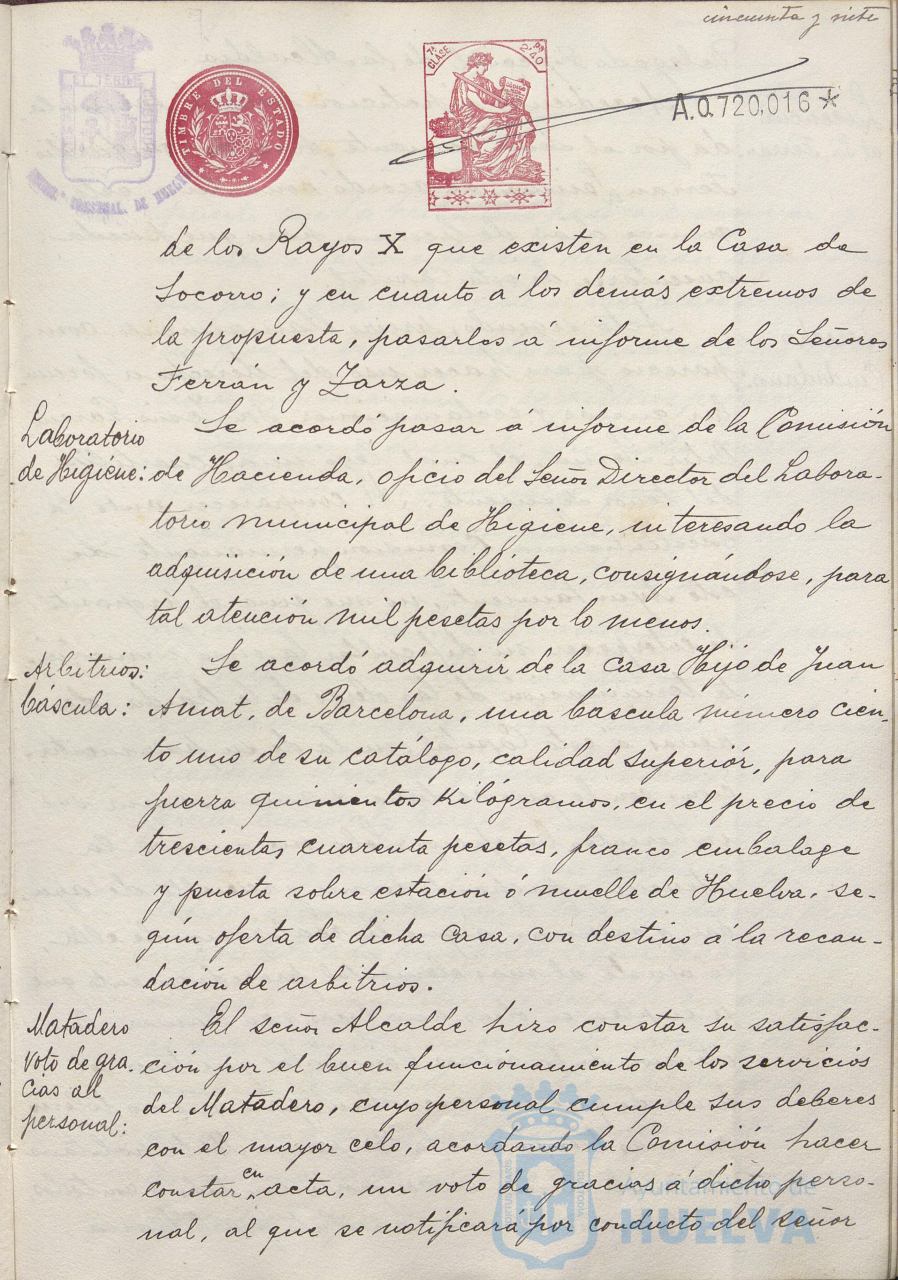 cincuenta y siete
TIMBRE DEL ESTADO
7ª CLASE Pts 2'40
A.0.720,016 *
de los Rayos X que existen en la Casa de
Socorro; y en cuanto á los demás extremos de
la propuesta, pasarlos á informe de los Señores
Ferrán y Zarza.
Laboratorio
de Higiene:
Se acordó pasar á informe de la Comisión
de Hacienda, oficio del Señor Director del Labora-
torio municipal de Higiene, interesando la
adquisición de una biblioteca, consignándose, para
tal atención mil pesetas por lo menos.
Arbitrios:
báscula:
Se acordó adquirir de la casa Hijo de Juan
Amat, de Barcelona, una báscula número cien-
to uno de su catálogo, calidad superiór, para
fuerza quinientos Kilógramos, en el precio de
trescientas cuarenta pesetas, franco embalage
y puesta sobre estación ó muelle de Huelva, se-
gún oferta de dicha casa, con destino á la recau-
dación de arbitrios.
Matadero
voto de gra-
cias al
personal:
El señor Alcalde hizo constar su satisfac-
ción por el buen funcionamiento de los servicios
del Matadero, cuyo personal cumple sus deberes
con el mayor celo, acordando la Comisión hacer
constar en acta, un voto de gracias á dicho perso-
nal, al que se notificará por conducto del señor
Ayuntamiento de
HUELVA